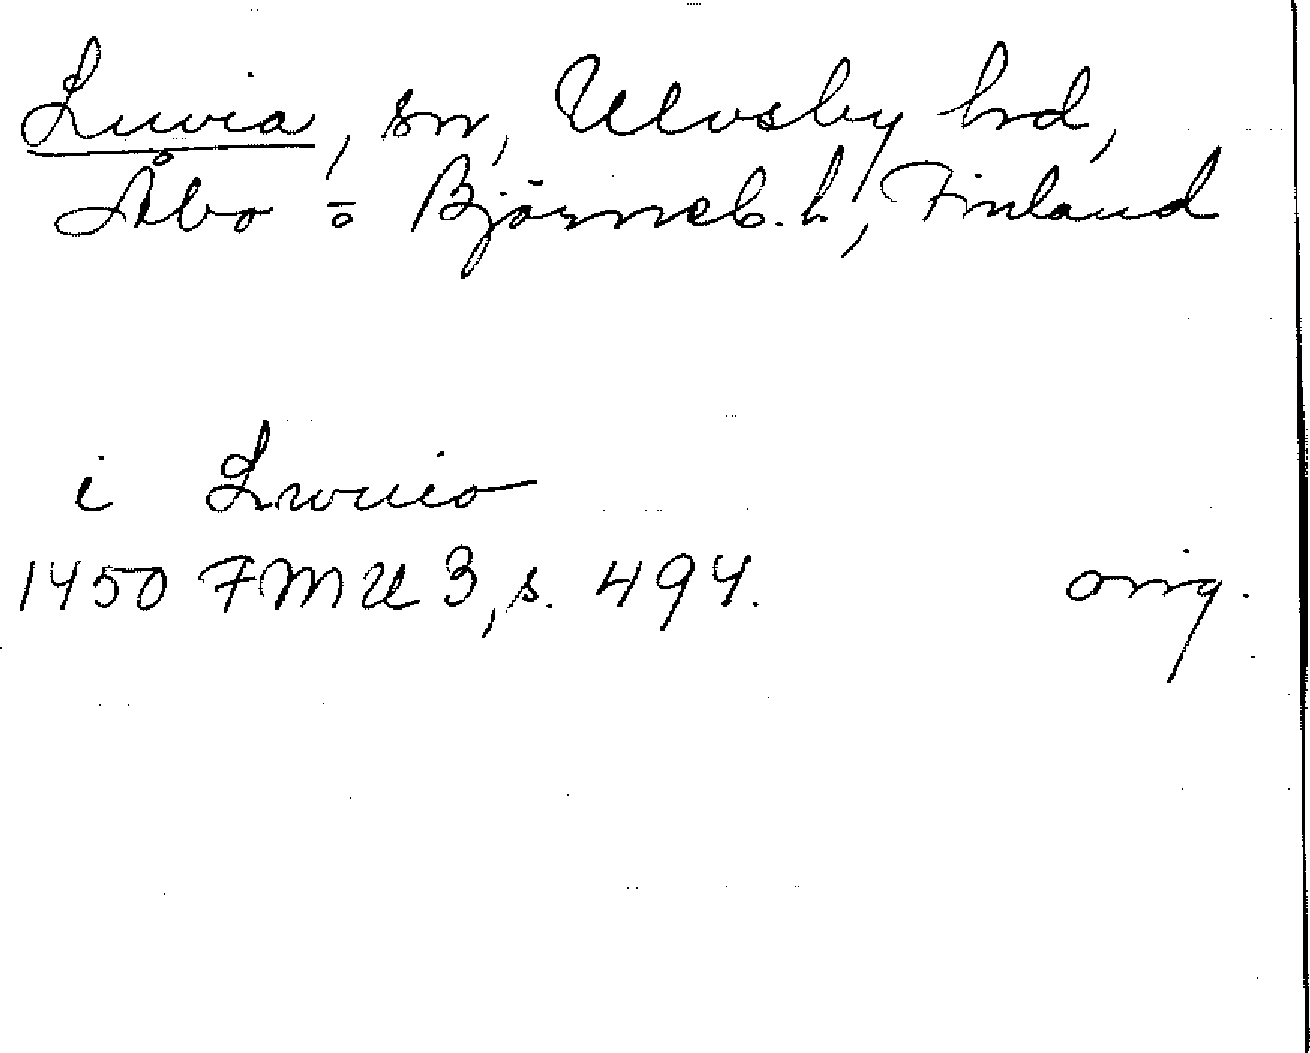 Luvia, sn, Ulvsby hd,
Åbo o Björneb. l, Finland
i Lwuio
1450 FMU 3, s. 494. orig.